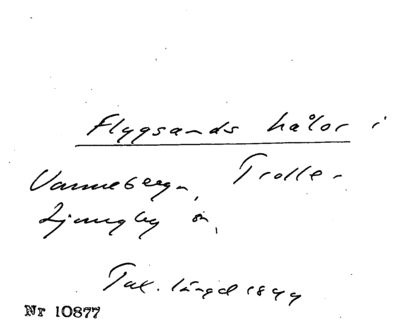 Flygsands hålor i
Vanneberga, Trolle-
Ljungby sn,
Tax. längd 1844
Nr 10877